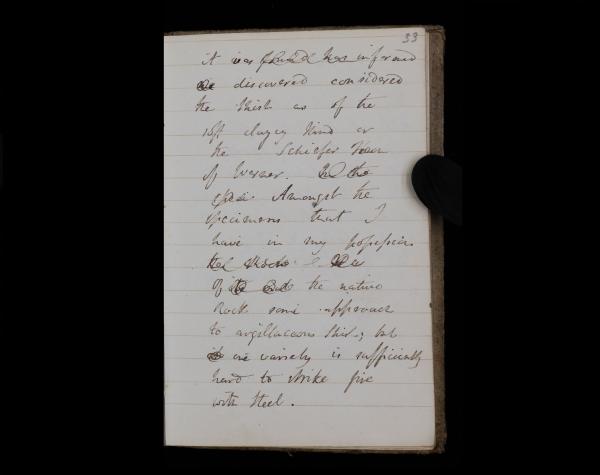 33
it was found has informed
discovered considered
the Shist as of the
soft clayey Kind or
the Schiefer
of Werner. In the
Amongst the
specimens that I
have in my possession
of the native
Rock some approach
to argillaceous Shist; but
one variety is sufficiently
hard to strike fire
with steel.